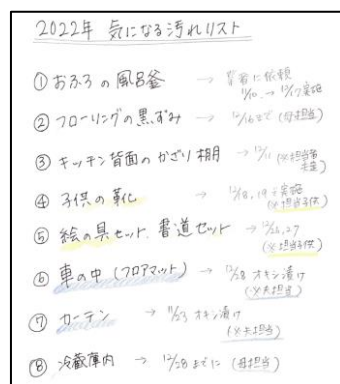 2022年 気になる汚れリスト
① おふろの風呂釜 → 業者に依頼
11/10. → 12/17実施
② フローリングの黒ずみ → 12/16まで (母担当)
③ キッチン背面のかざり棚 → 12/11 (※担当者
未定)
④ 子供の靴化 → 12/18,19で実施
(※担当子供)
⑤ 絵の具セット、書道セット → 12/26,27
(※担当子供)
⑥ 車の中 (フロアマット) → 12/28 オキシ漬け
(※夫担当)
⑦ カーテン → 11/23 オキシ漬け
(※夫担当)
⑧ 冷蔵庫内 → 12/28までに (母担当)